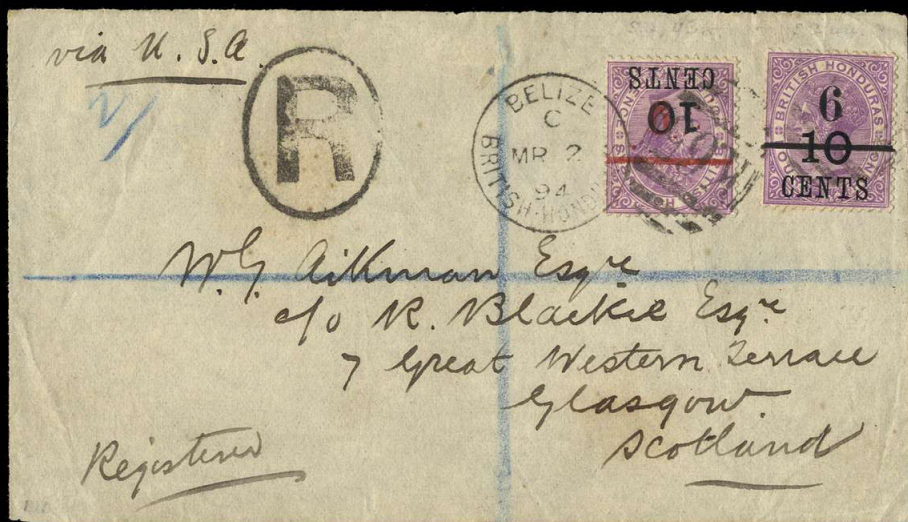 via U.S.A.
R
BELIZE
C
MR 2
94
BRITISH-HOND
CENTS
10
BRITISH HONDURAS
6
10
CENTS
W.G. Aikman Esqre
c/o R. Blackie Esqre
7 Great Western Terrace
Glasgow.
Scotland
Registered